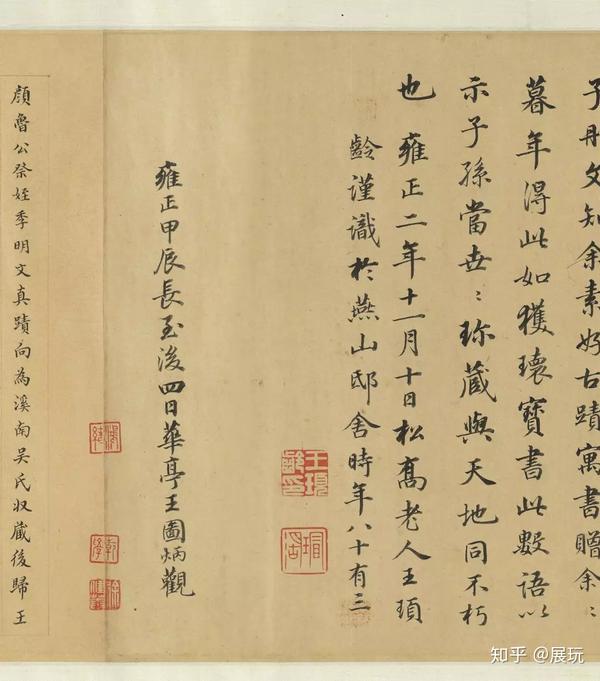 子文知余素好古蹟寓書贈余〻
暮年得此如獲瓌寶書此數語以
示子孫當世〻珍藏與天地同不朽
也雍正二年十一月十日松喬老人王頊
齡謹識於燕山邸舍時年八十有三
王頊齡印
瑁湖
雍正甲辰長至後四日華亭王圖炳觀
顏魯公祭姪季明文真蹟向為溪南吳氏収藏後歸王
知乎 @展玩